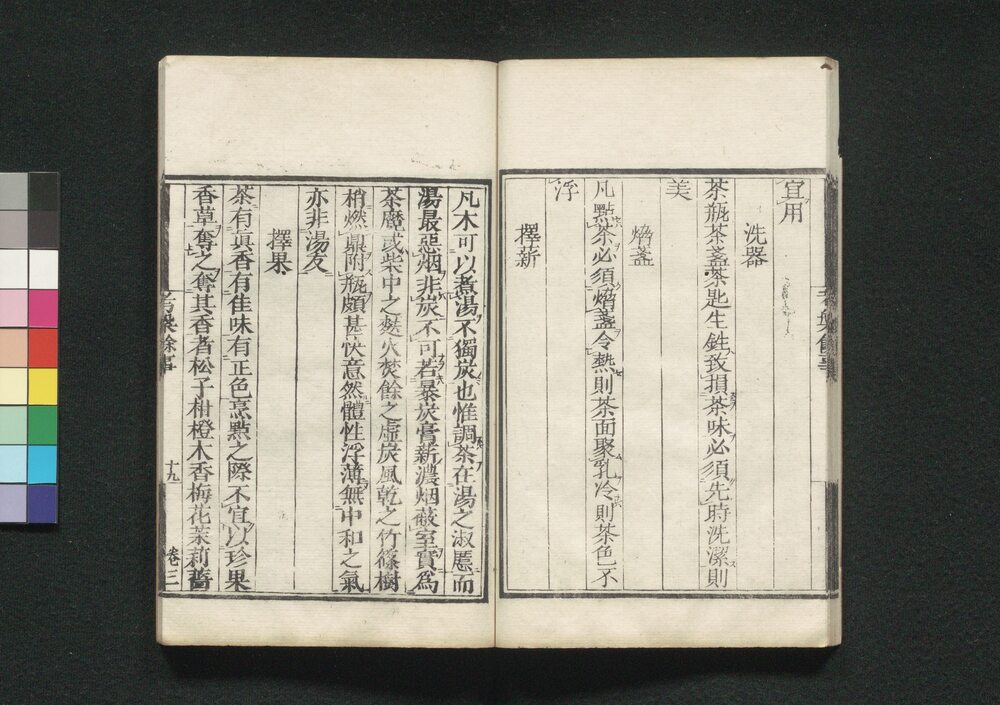 宜用
洗器
茶瓶茶盞茶匙生鉎致損茶味必須先時洗潔則
美
熁盞
凡點茶必須熁盞令熱則茶面聚乳冷則茶色不
浮
擇薪
凡木可以煮湯不獨炭也惟調茶在湯之淑慝而
湯最惡烟非炭不可若暴炭膏薪濃烟蔽室實為
茶魔或柴中之麩火焚餘之虛炭風乾之竹篠樹
梢燃鼎附瓶頗甚快意然體性浮薄無中和之氣
亦非湯友
擇果
茶有真香有佳味有正色烹點之際不宜以珍果
香草奪之奪其香者松子柑橙木香梅花茉莉薔
考槃餘事
十九
卷三